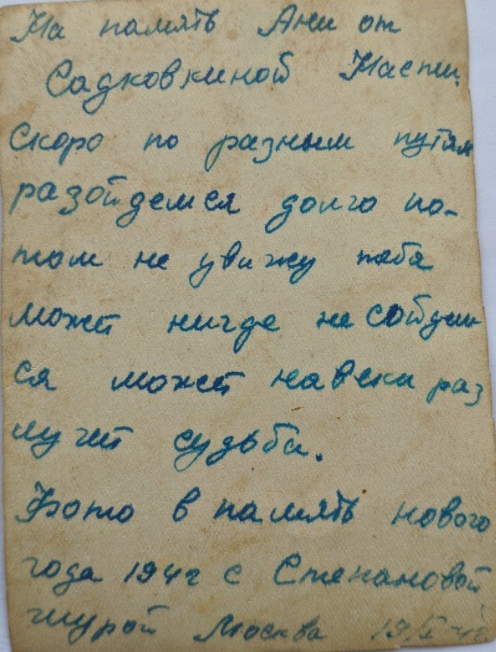 На память Ани от
Садковкиной Насти.
Скоро по разным путям
разойдемся долго по-
том не увижу тебя
может нигде не сойдем
ся может навеки раз
лучит судьба.
Фото в память нового
года 194г с Степановой
Шурой Москва